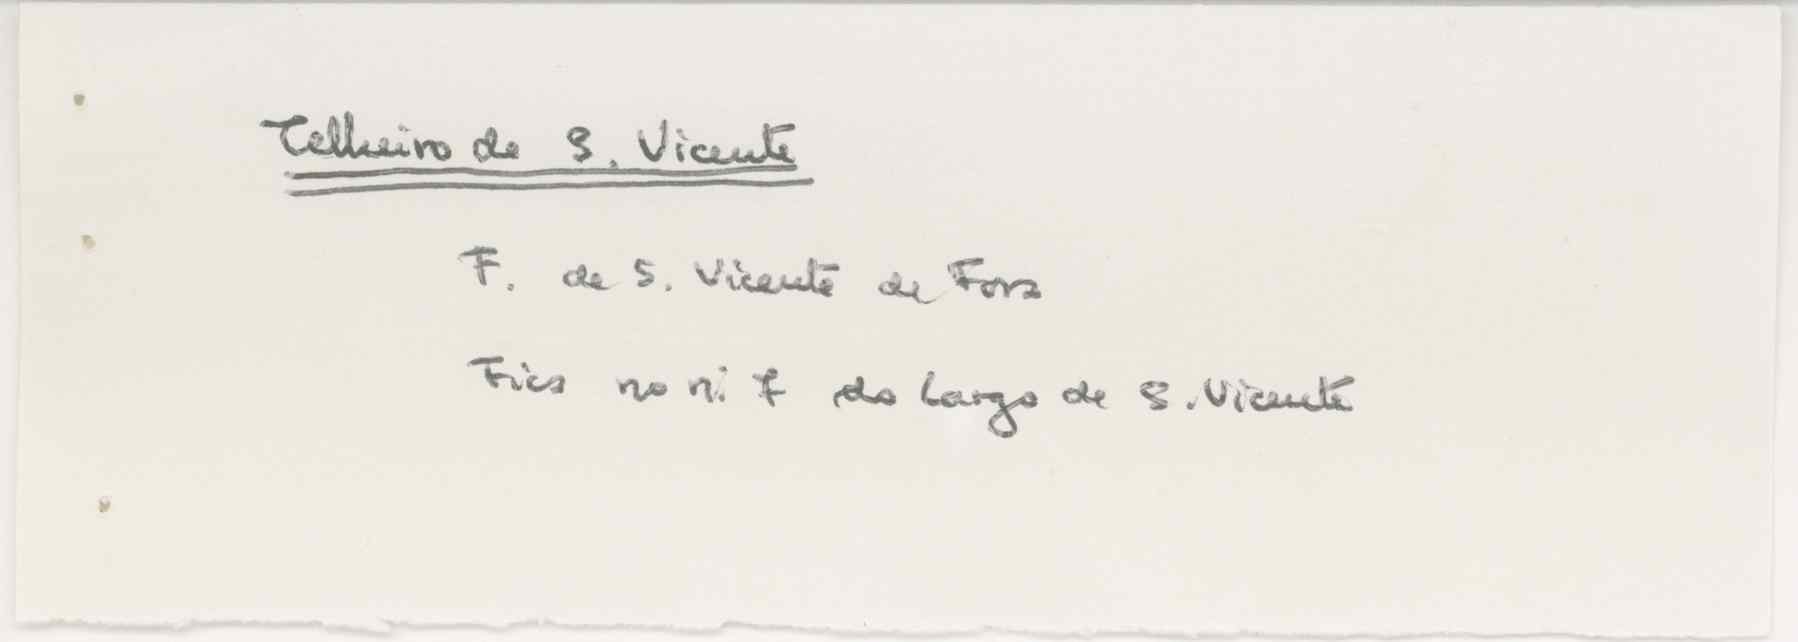 Telheiro de S. Vicente
F. de S. Vicente de Fora
Fica no n.º 7 do Largo de S. Vicente